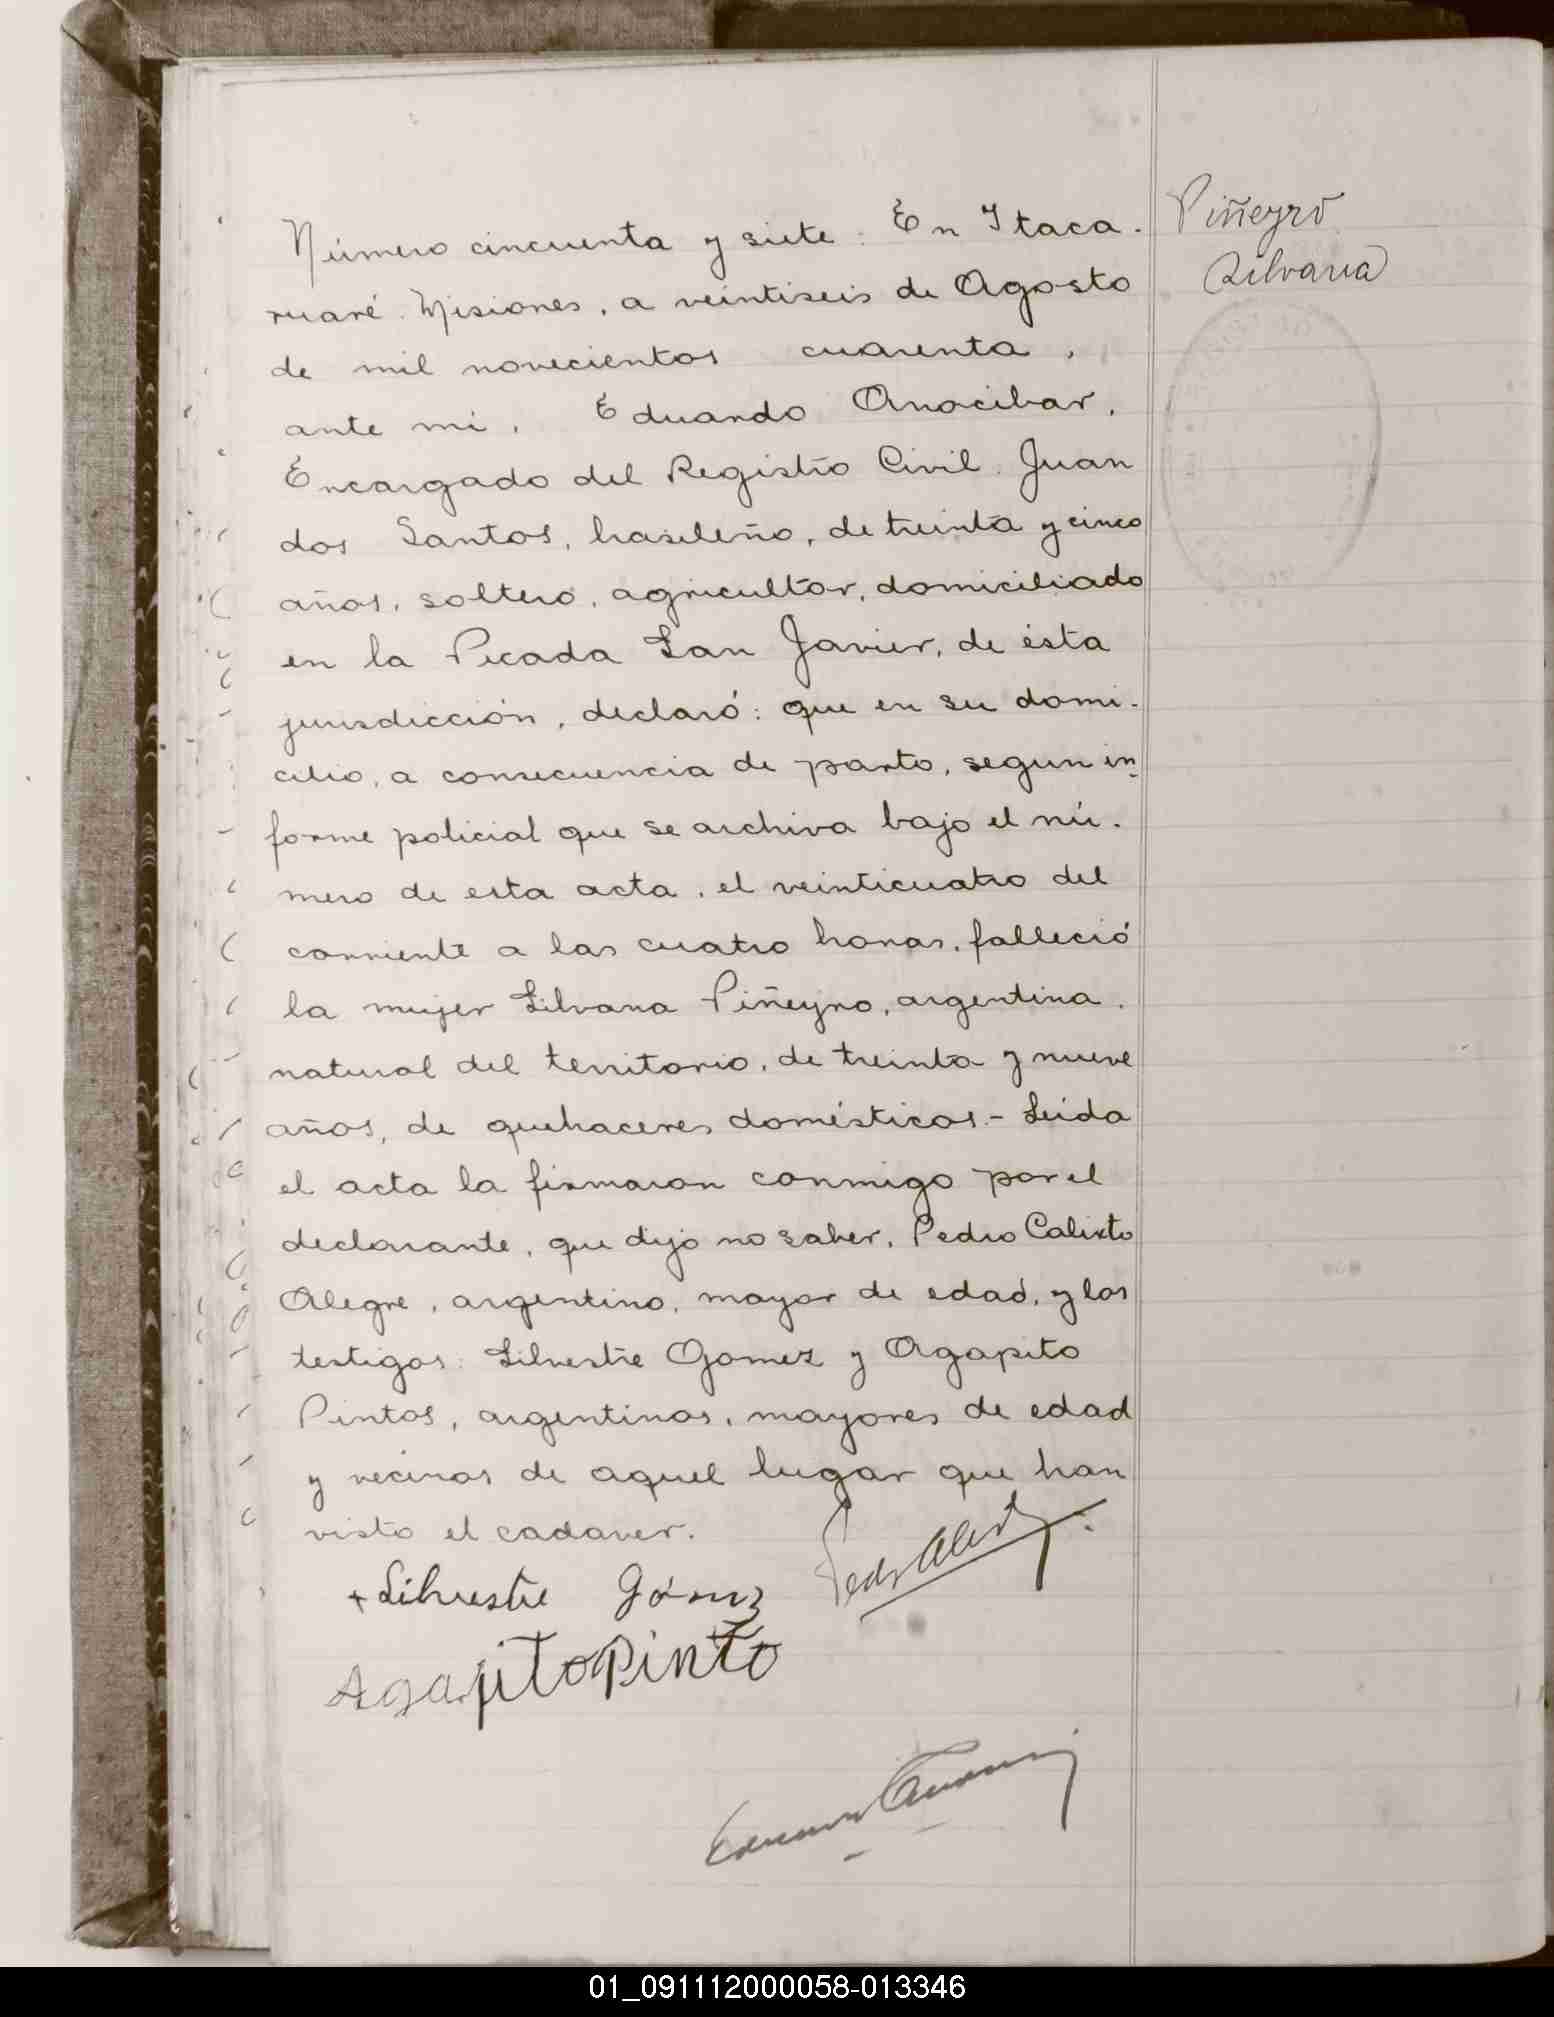 Número cincuenta y siete: En Itaca-
ruaré. Misiones, a veintiseis de Agosto
de mil novecientos cuarenta,
ante mi, Eduardo Anocibar,
Encargado del Registro Civil. Juan
dos Santos, brasileño, de treinta y cinco
años, soltero, agricultor, domiciliado
en la Picada San Javier, de ésta
jurisdicción, declaró: que en su domi-
cilio, a consecuencia de parto, segun in-
forme policial que se archiva bajo el nú-
mero de esta acta, el veinticuatro del
corriente a las cuatro horas, falleció
la mujer Silvana Piñeyro, argentina,
natural del territorio, de treinta y nueve
años, de quehaceres domésticos.- Leida
el acta la firmaron conmigo por el
declarante, que dijo no saber, Pedro Calixto
Alegre, argentino, mayor de edad, y los
testigos: Silvestre Gomez y Agapito
Pintos, argentinos, mayores de edad
y vecinos de aquel lugar que han
visto el cadaver.
Piñeyro
Silvana
+ Silvestre Gómez
Agapito Pinto
01_091112000058-013346